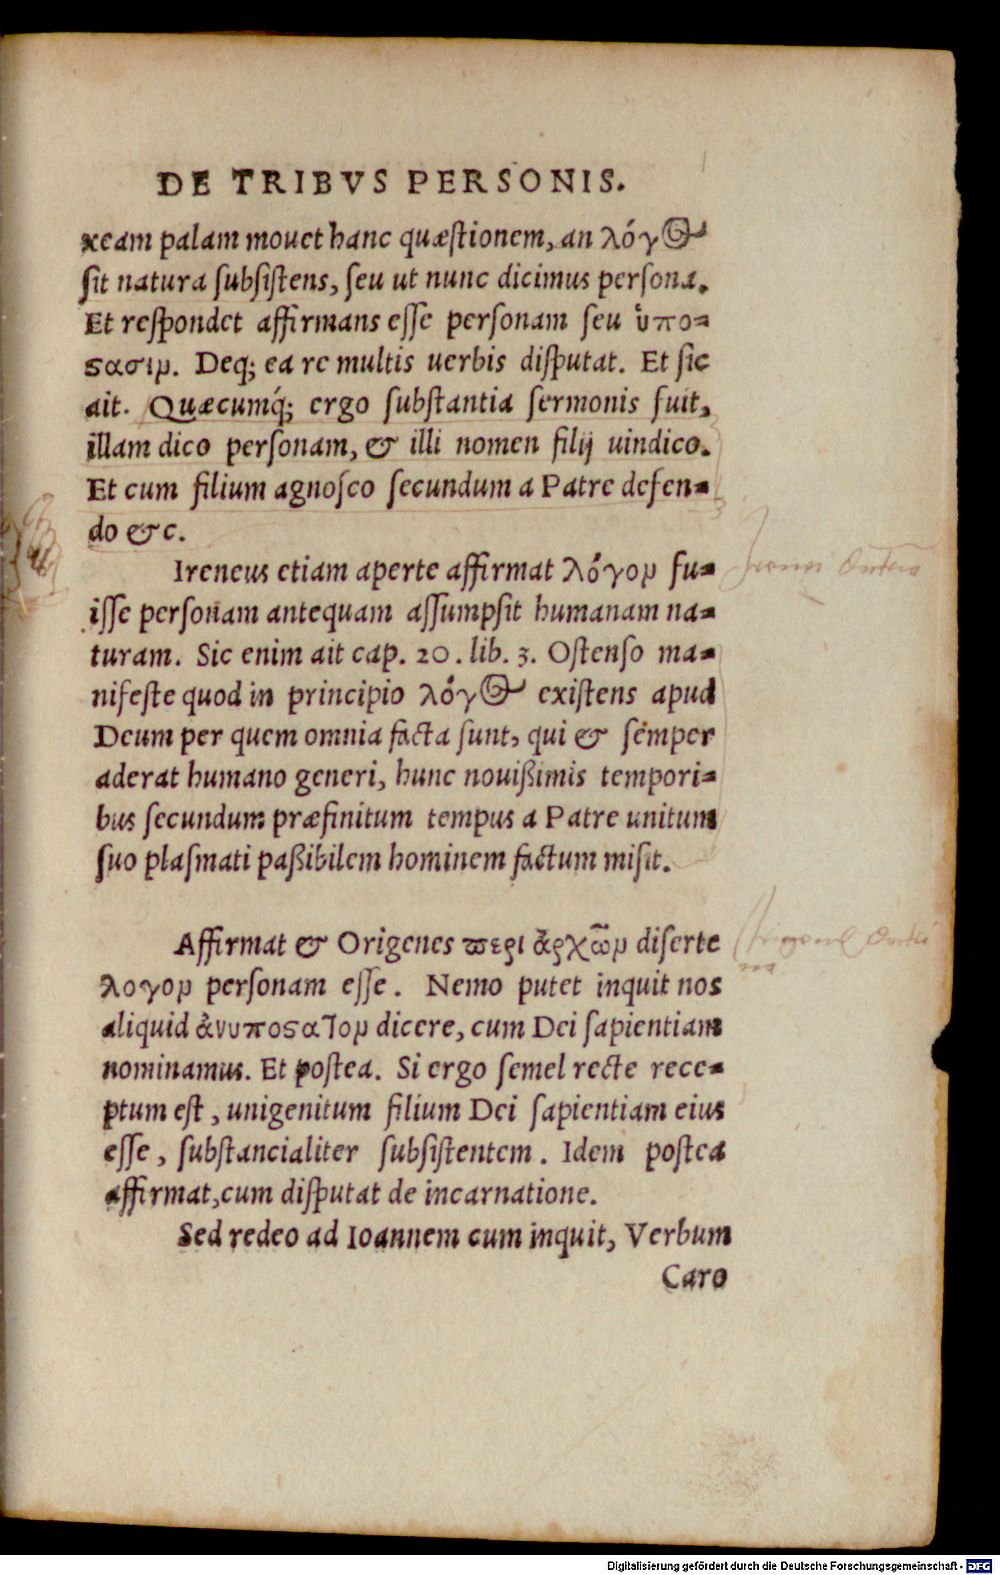 DE TRIBVS PERSONIS.
xeam palam mouet hanc quæstionem, an λόγος
sit natura subsistens, seu ut nunc dicimus persona.
Et respondet affirmans esse personam seu ὑπο=
ϛασιν. Deq; ea re multis uerbis disputat. Et sic
ait. Quæcumq́; ergo substantia sermonis fuit,
illam dico personam, & illi nomen filij uindico.
Et cum filium agnosco secundum a Patre defen=
do &c.
Ireneus etiam aperte affirmat λόγον fu=
isse personam antequam assumpsit humanam na=
turam. Sic enim ait cap. 20. lib. 3. Ostenso ma=
nifeste quod in principio λόγος existens apud
Deum per quem omnia facta sunt, qui & semper
aderat humano generi, hunc nouißimis tempori=
bus secundum præfinitum tempus a Patre unitum
suo plasmati paßibilem hominem factum misit.
Affirmat & Origenes περι ἀρχῶν diserte
λογον personam esse. Nemo putet inquit nos
aliquid ἀνυποϛατον dicere, cum Dei sapientiam
nominamus. Et postea. Si ergo semel recte rece=
ptum est, unigenitum filium Dei sapientiam eius
esse, substancialiter subsistentem. Idem postea
affirmat, cum disputat de incarnatione.
Sed redeo ad Ioannem cum inquit, Verbum
Caro
Digitalisierung gefördert durch die Deutsche Forschungsgemeinschaft - DFG